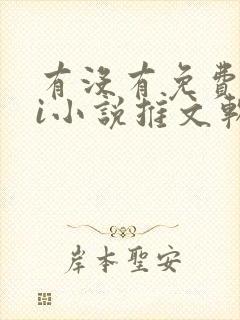 有没有免费
i小说推文
岸本聖安